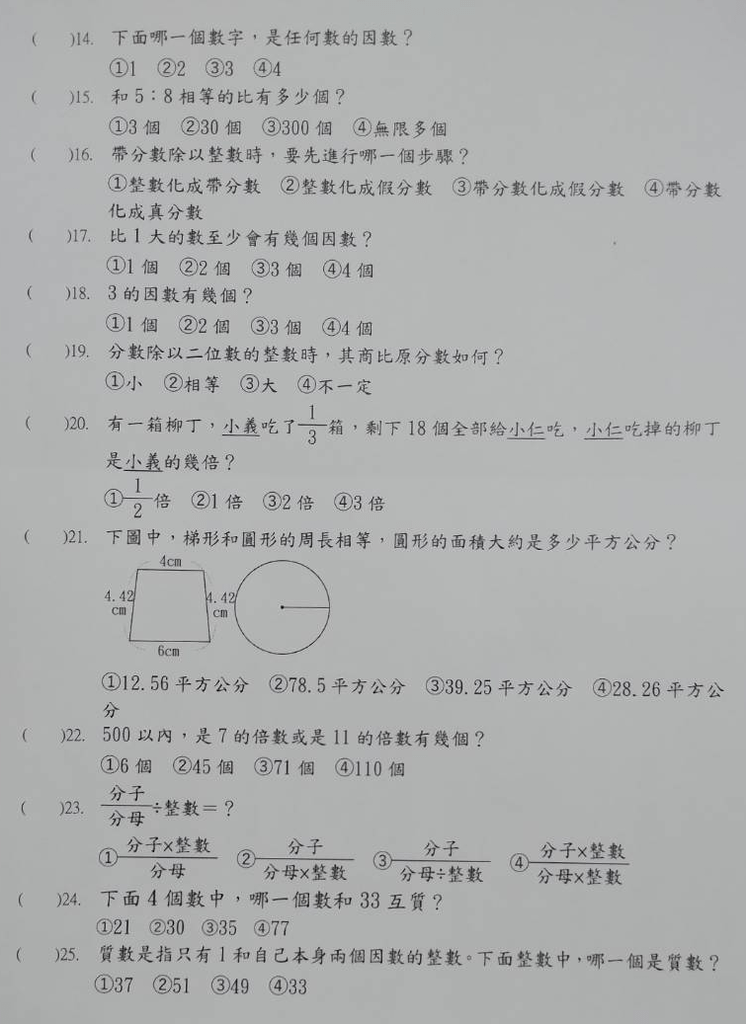 (　　)14. 下面哪一個數字，是任何數的因數？
①1　②2　③3　④4
(　　)15. 和 5：8 相等的比有多少個？
①3 個　②30 個　③300 個　④無限多個
(　　)16. 帶分數除以整數時，要先進行哪一個步驟？
①整數化成帶分數　②整數化成假分數　③帶分數化成假分數　④帶分數
化成真分數
(　　)17. 比 1 大的數至少會有幾個因數？
①1 個　②2 個　③3 個　④4 個
(　　)18. 3 的因數有幾個？
①1 個　②2 個　③3 個　④4 個
(　　)19. 分數除以二位數的整數時，其商比原分數如何？
①小　②相等　③大　④不一定
(　　)20. 有一箱柳丁，小義吃了1/3箱，剩下 18 個全部給小仁吃，小仁吃掉的柳丁
是小義的幾倍？
①1/2倍　②1 倍　③2 倍　④3 倍
(　　)21. 下圖中，梯形和圓形的周長相等，圓形的面積大約是多少平方公分？
4cm
4.42 4.42
cm cm
6cm
①12.56 平方公分　②78.5 平方公分　③39.25 平方公分　④28.26 平方公
分
(　　)22. 500 以內，是 7 的倍數或是 11 的倍數有幾個？
①6 個　②45 個　③71 個　④110 個
(　　)23. 分子/分母÷整數＝？
①分子×整數/分母　②分子/分母×整數　③分子/分母÷整數　④分子×整數/分母×整數
(　　)24. 下面 4 個數中，哪一個數和 33 互質？
①21　②30　③35　④77
(　　)25. 質數是指只有 1 和自己本身兩個因數的整數。下面整數中，哪一個是質數？
①37　②51　③49　④33